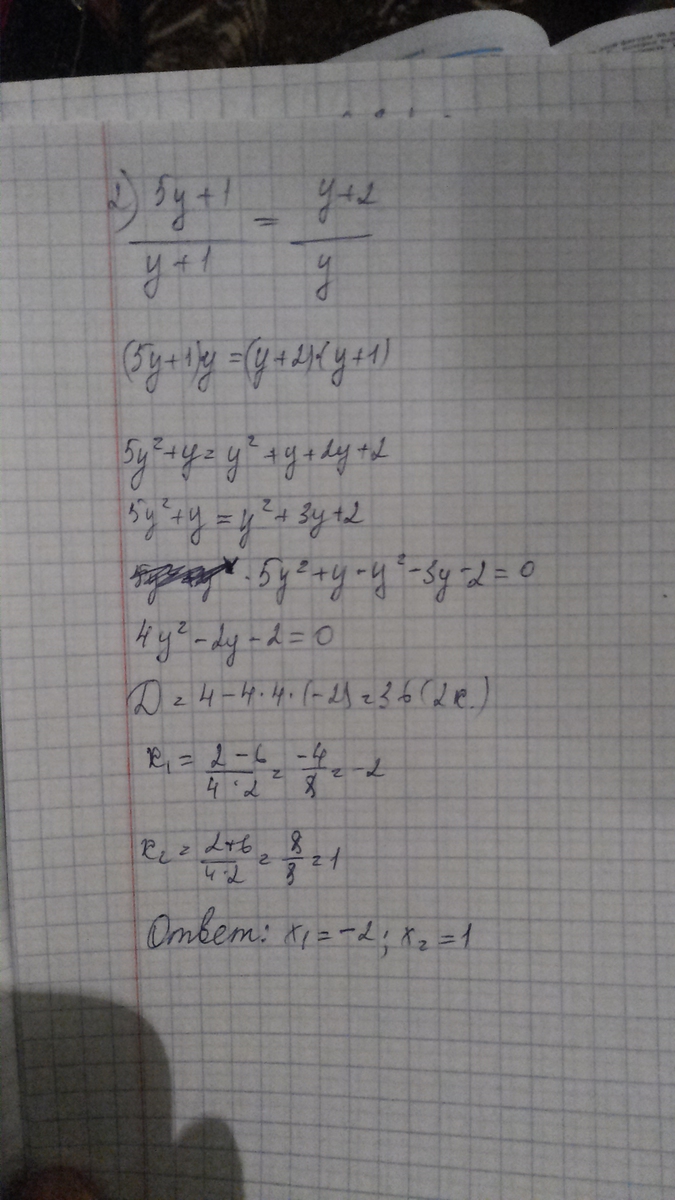 2) 5y+1 / y+1 = y+2 / y
(5y+1)y = (y+2)·(y+1)
5y²+y = y²+y+2y+2
5y²+y = y²+3y+2
5y²+y-y²-3y-2=0
4y²-2y-2=0
D = 4-4·4·(-2) = 36 (2к.)
x₁ = 2-6 / 4·2 = -4 / 8 = -2
x₂ = 2+6 / 4·2 = 8 / 8 = 1
Ответ: x₁ = -2; x₂ = 1